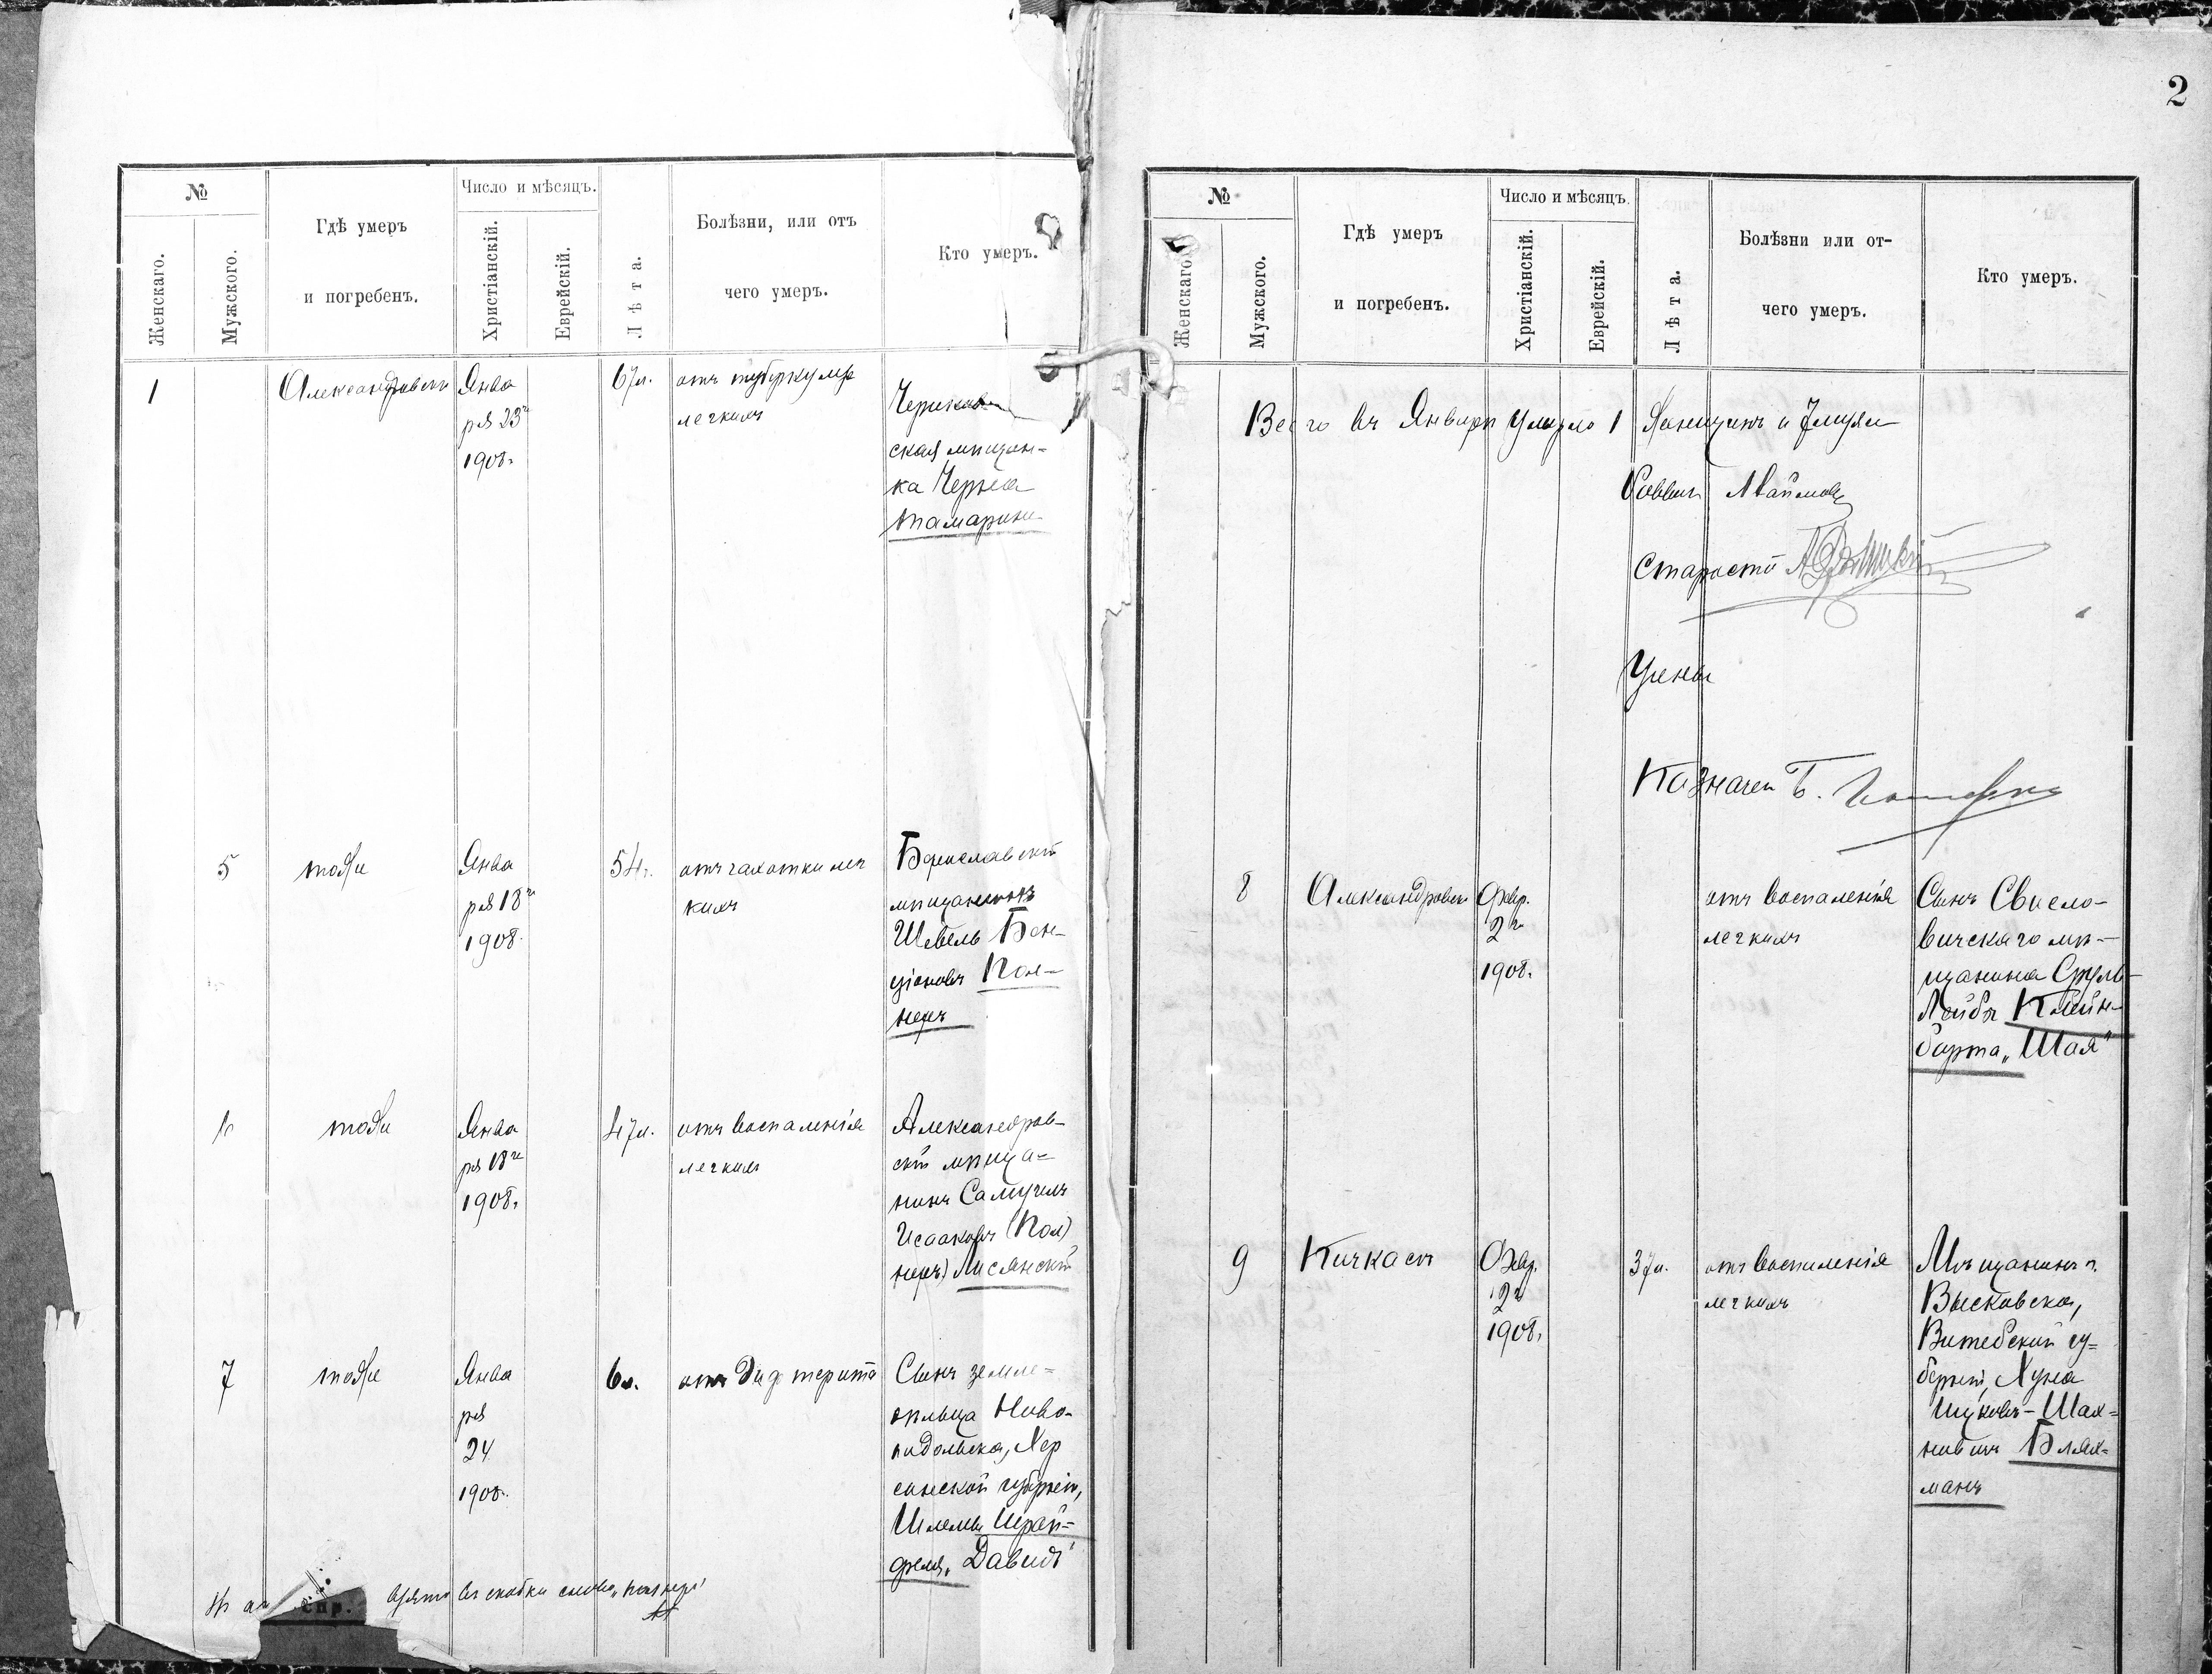 2
№
Женскаго.
Мужского.
Гдѣ умеръ
и погребенъ.
Число и мѣсяцъ.
Христіанскій.
Еврейскій.
Лѣта.
Болѣзни, или отъ
чего умеръ.
Кто умеръ.
1
Александровскъ
Янва
ря 23го
1908.
67л.
отъ туберкулеза
легкихъ
ская мѣщан-
ка Черна
Тамаркина
5
тоже
Янва
ря 18го
1908.
54г.
отъ чахотки лег
кихъ
Бориславскій
мѣщанинъ
Шевель Бен-
ціоновъ Поз-
неръ
6
тоже
Янва
ря 18го
1908г.
47л.
отъ воспаленія
легкихъ
Александров-
скій мѣща-
нинъ Самуилъ
Исааковъ (Поз)
неръ) Лисянскій
7
тоже
Янва
ря
24
1908г.
6л.
отъ дифтерита
Сынъ земле-
дѣльца Ново-
подольска, Хер
сонской губерніи,
Шлемы Шрай-
феля „Давидъ“
взято въ скобки слово „Познеръ“
№
Женскаго.
Мужского.
Гдѣ умеръ
и погребенъ.
Число и мѣсяцъ.
Христіанскій.
Еврейскій.
Лѣта.
Болѣзни или от-
чего умеръ.
Кто умеръ.
Всего въ Январѣ умерло 1 Женщинъ и 7 мужч
Раввинъ
Староста
Члены
Казначей Б.
8
Александровскъ
Февр.
2го
1908.
отъ воспаленія
легкихъ
Сынъ Свисло-
вичскаго мѣ-
щанина Сруль
Лейбы Клейн-
барта „Шая“
9
Кичкасъ
Февр.
2го
1908.
37л.
отъ воспаленія
легкихъ
Мѣщанинъ г.
Витебской гу-
берніи, Хуна
Шах-
новичъ Блях-
манъ